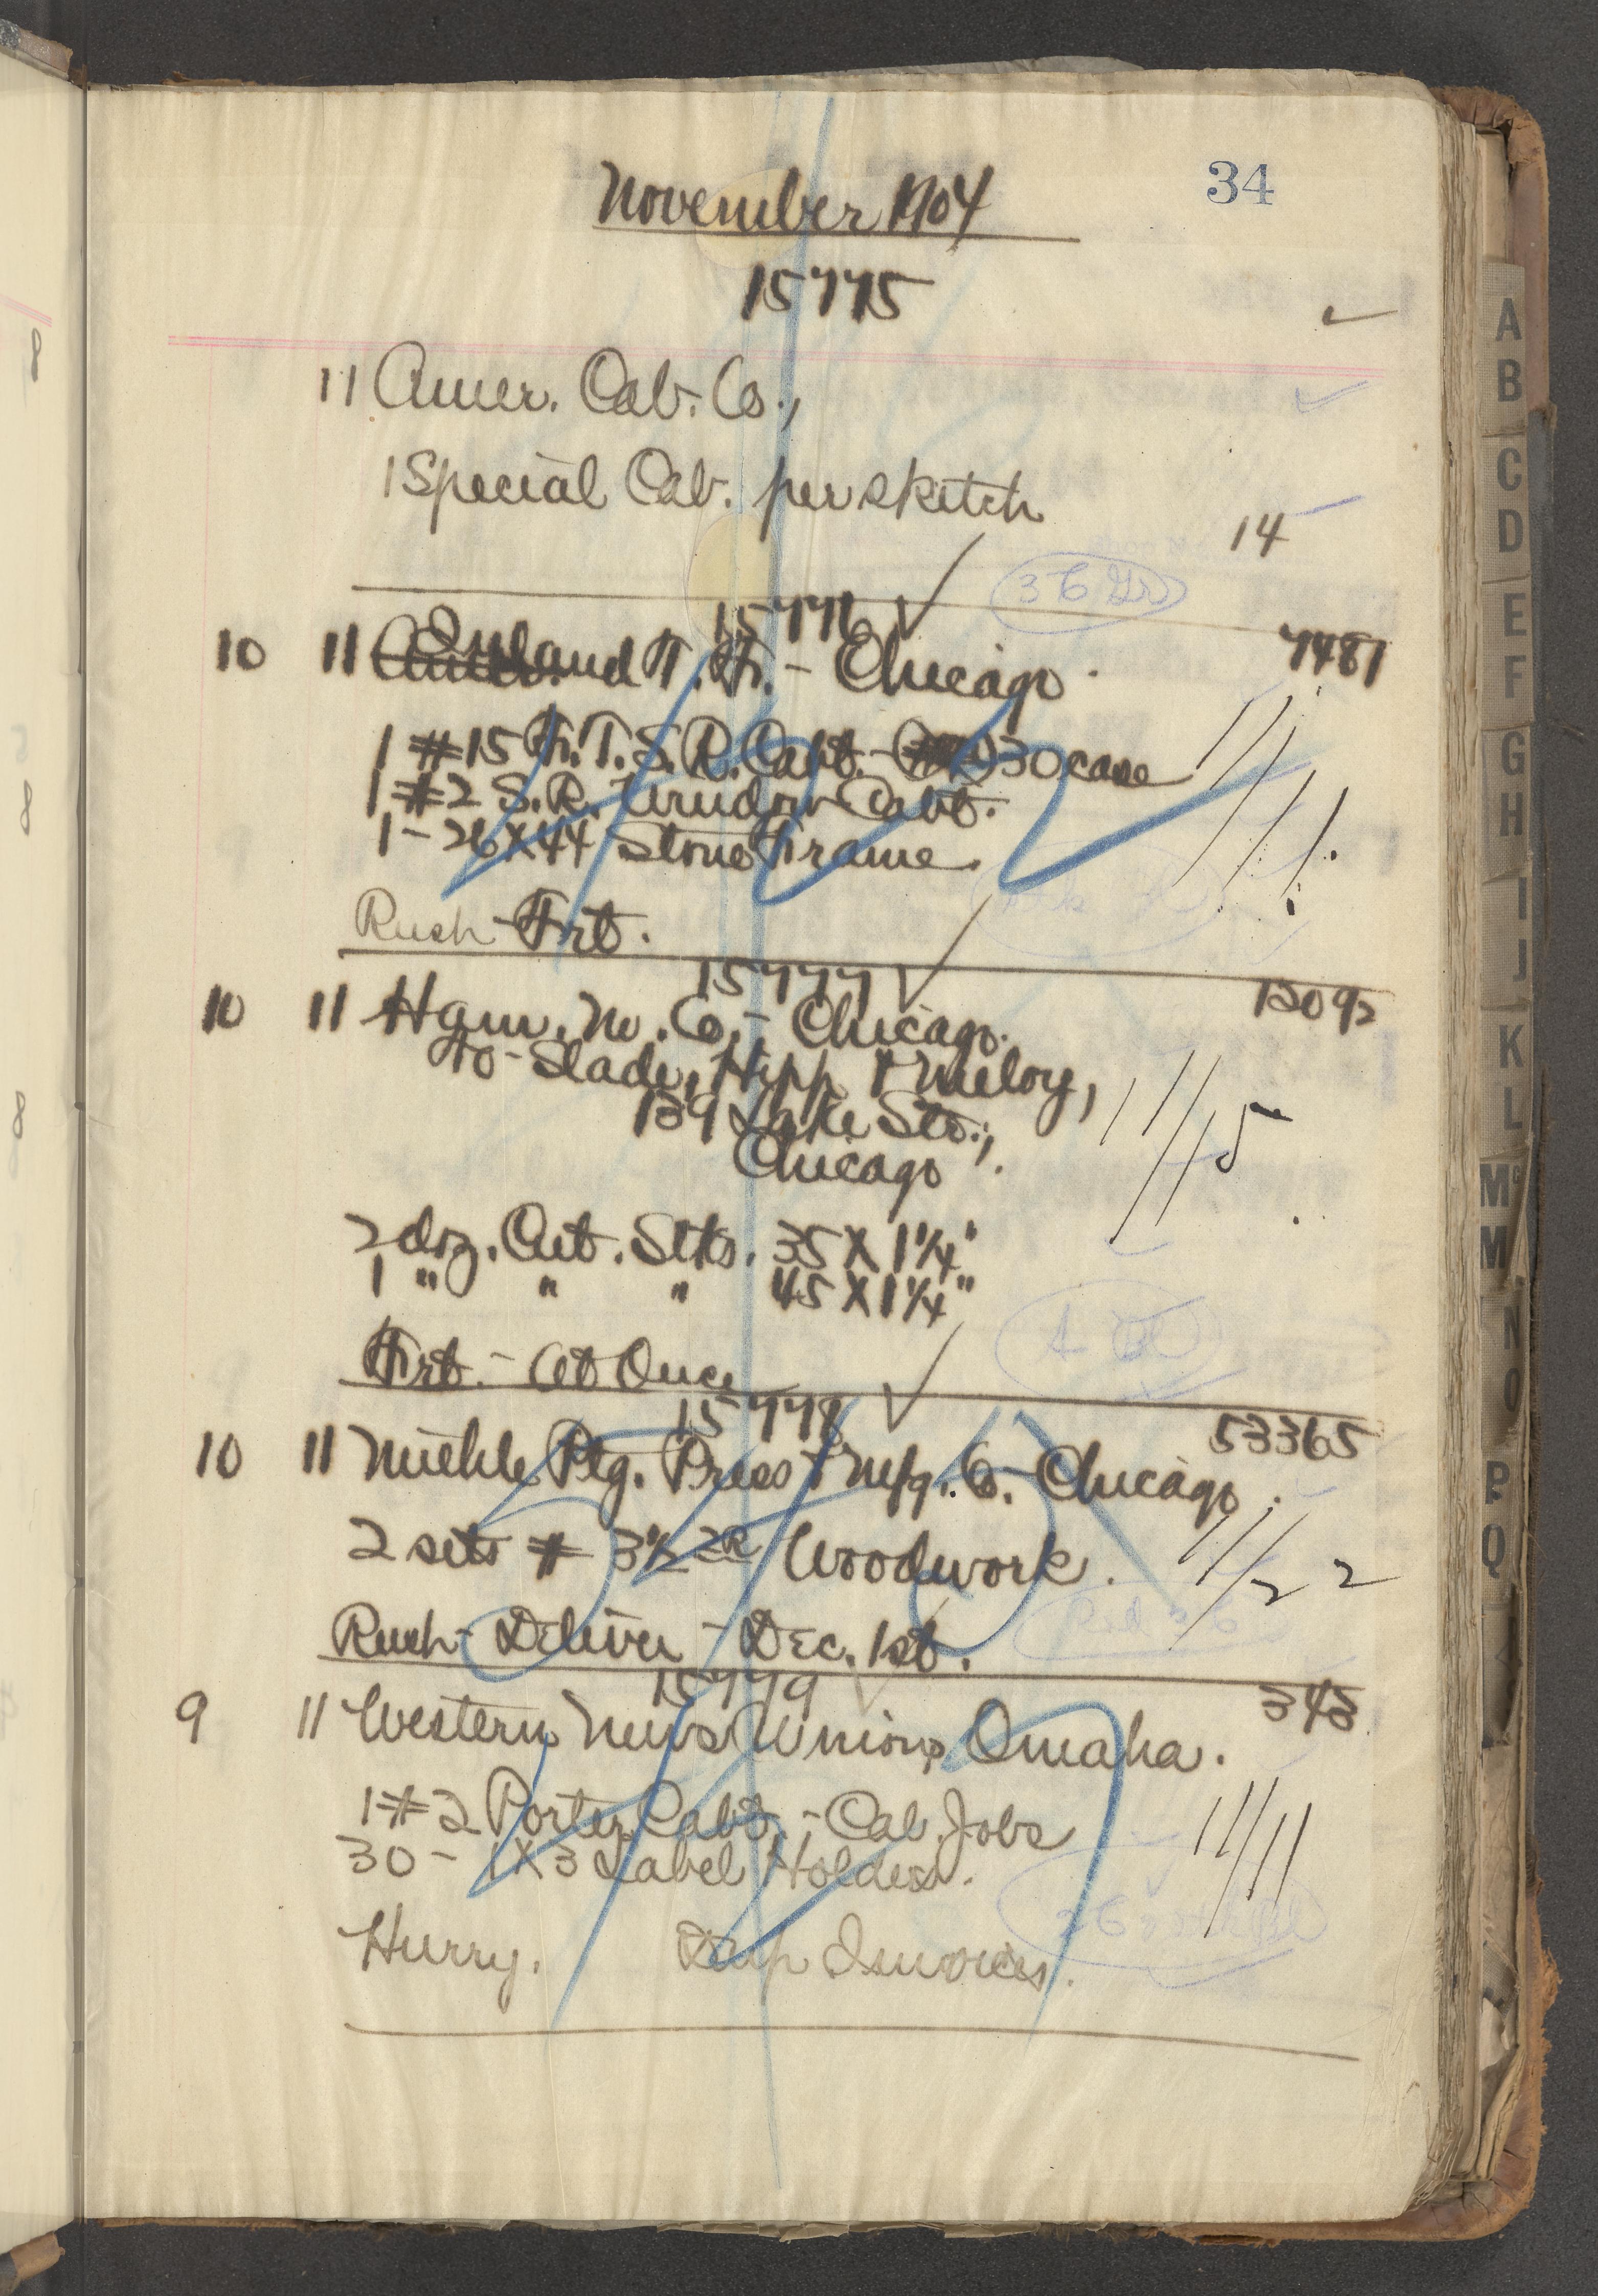 34
November 1904
15775
11 Amer. Cab. Co.,
1 Special Cab. per sketch
14
15776
3 C Gr
7481
10 11 England T. F. - Chicago.
1 #15 F. T. S. R. Cabt. - 30 case
1 #2 S. R. Window Cabt.
1 - 26X44 Stone Frame.
Rush - Frt.
15777
12092
10 11 Ham. M. Co. - Chicago.
To - Slade, Hipp & Meloy,
139 Lake St.,
Chicago.
11/15
2 doz. Cut. Stks. 35 X 1 1/4"
1 " " " 45 X 1 1/4"
Frt. - At Once
15778
53365
10 11 Miehle Ptg. Press & Mfg. Co. - Chicago.
2 sets # 3 1/2 2R Woodwork.
11/22
Rush - Deliver - Dec. 1st.
15779
343
9 11 Western News Union, Omaha.
1 #2 Porter Cabt. - Cal. Jobs
30 - 1X3 Label Holders.
11/11
Hurry. Dup Invoices.
A
B
C
D
E
F
G
H
I
J
K
L
Mc
M
N
O
P
Q